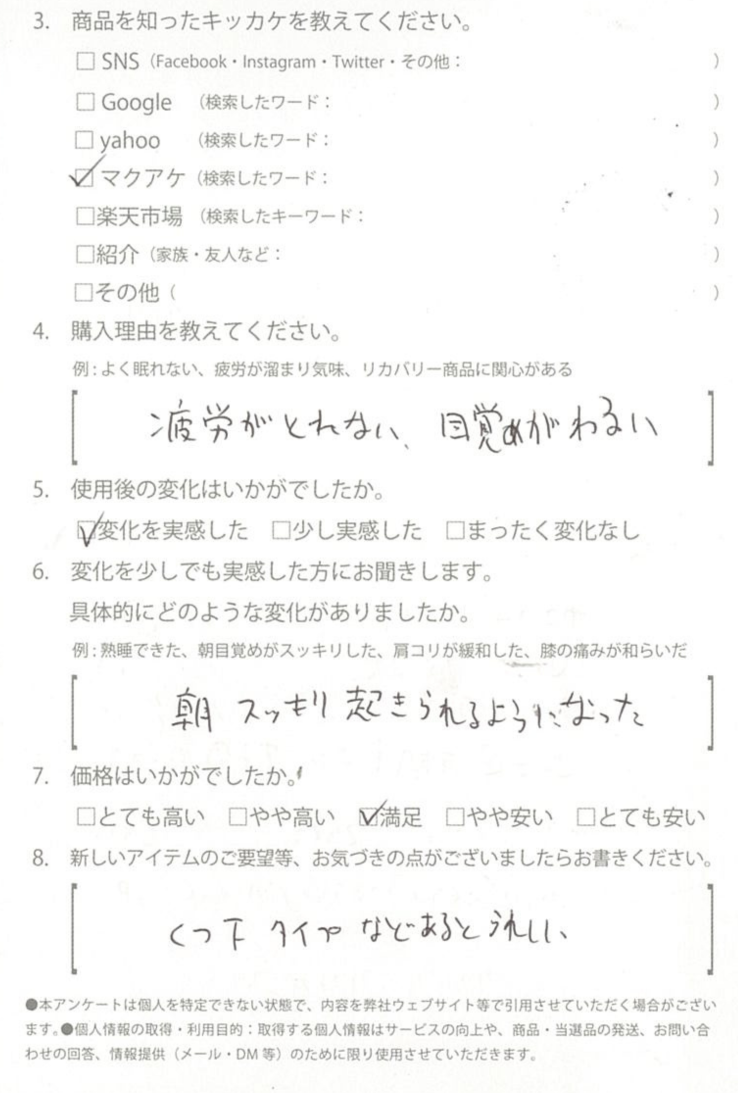 3. 商品を知ったキッカケを教えてください。
□ SNS（Facebook・Instagram・Twitter・その他： ）
□ Google （検索したワード： ）
□ yahoo （検索したワード： ）
☑ マクアケ（検索したワード： ）
□楽天市場 （検索したキーワード： ）
□紹介（家族・友人など： ）
□その他（ ）
4. 購入理由を教えてください。
例：よく眠れない、疲労が溜まり気味、リカバリー商品に関心がある
疲労がとれない、目覚めがわるい
5. 使用後の変化はいかがでしたか。
☑変化を実感した □少し実感した □まったく変化なし
6. 変化を少しでも実感した方にお聞きします。
具体的にどのような変化がありましたか。
例：熟睡できた、朝目覚めがスッキリした、肩コリが緩和した、膝の痛みが和らいだ
朝 スッキリ 起きられるようになった
7. 価格はいかがでしたか。
□とても高い □やや高い ☑満足 □やや安い □とても安い
8. 新しいアイテムのご要望等、お気づきの点がございましたらお書きください。
くつ下 タイプ などあるとうれしい、
●本アンケートは個人を特定できない状態で、内容を弊社ウェブサイト等で引用させていただく場合がござい
ます。●個人情報の取得・利用目的：取得する個人情報はサービスの向上や、商品・当選品の発送、お問い合
わせの回答、情報提供（メール・DM 等）のために限り使用させていただきます。